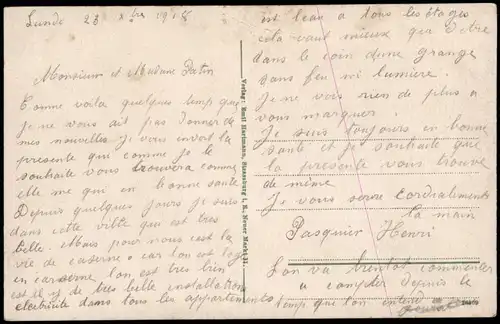 Lundi 23 Xbre 1918
Monsieur et Madame Patin
Comme voila quelques temp que
je ne vous ait pas donner de
mes nouvelles. Je vous envoit la
presente qui comme je le
souhaite vous trouvera comme
elle me qui en bonne santé
Depuis quelques jours est
dans cette ville qui est tres
belle. Mais pour nous c'est la
vie de caserne car l'on est logé
en caserne l'on est tres bien
est il y de tres belle installations
electricité dans tous les appartements
est l'eau a tous les étages
cela vaut mieux que d'etre
dans le coin d'une grange
sans feu ni lumière.
Je ne vois rien de plus a
vous marquer.
Je suis toujours en bonne
santé et je souhaite que
la presente vous trouve
de même
Je vous serre Cordialement
la main
Pasquier Henri
L'on va bientot commenter
a compter depuis le
temp que l'on entend
Verlag: Emil Hartmann, Flensburg i. R., Neuer Markt 11.